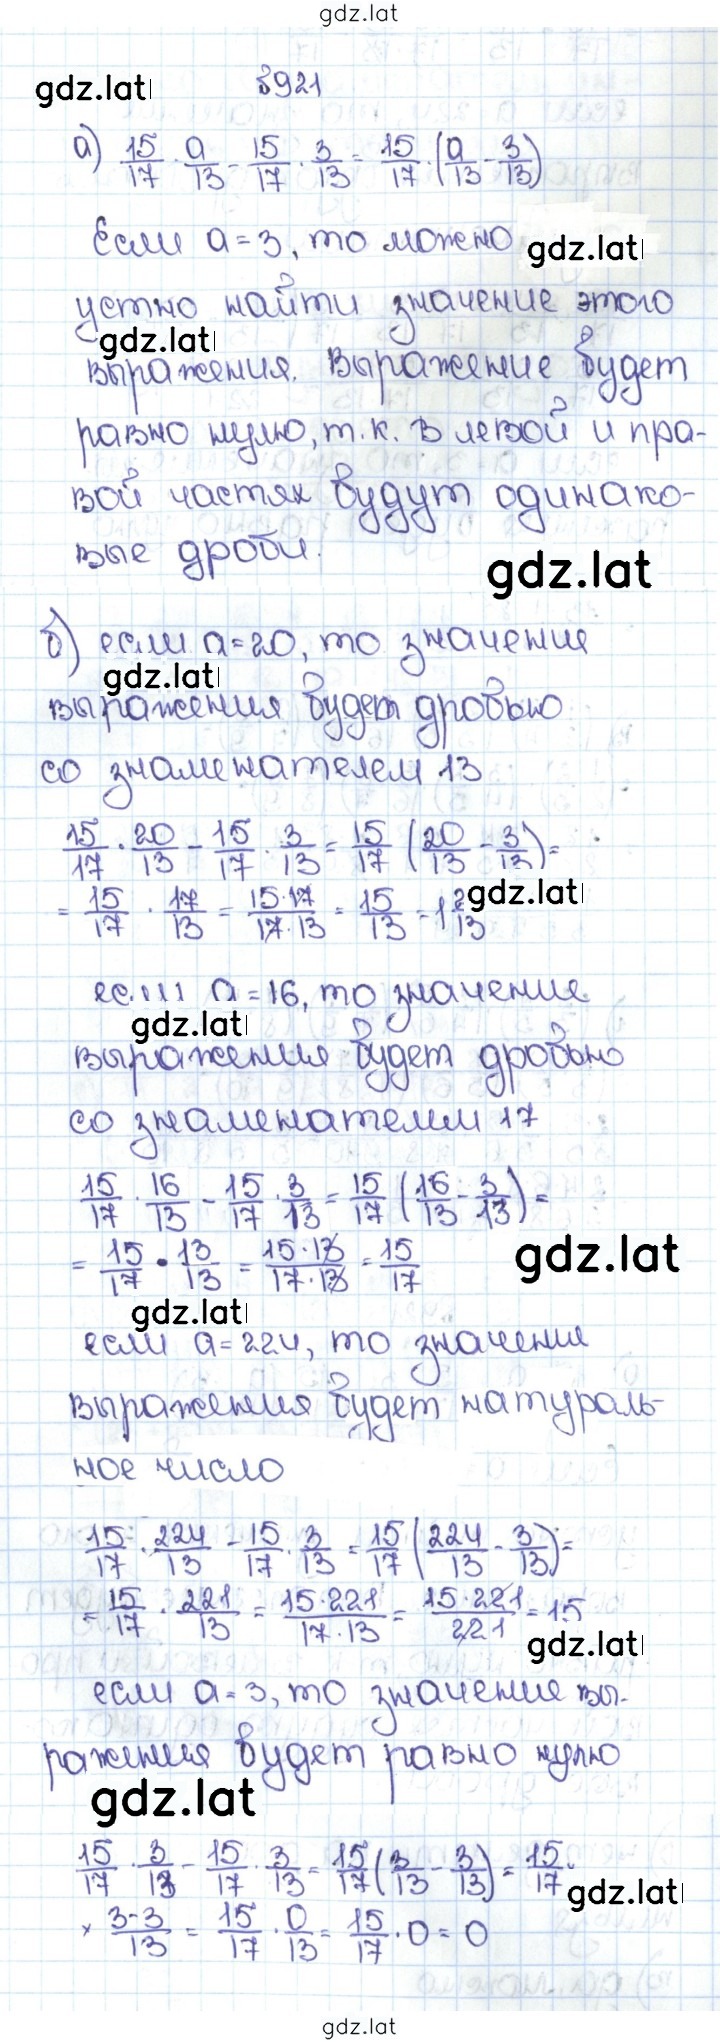 gdz.lat
gdz.lat
§921
а) 15/17 · a/13 - 15/17 · 3/13 = 15/17 · (a/13 - 3/13)
Если a = 3, то можно
gdz.lat
устно найти значение этого
gdz.lat
выражения. Выражение будет
равно нулю, т.к. в левой и пра-
вой частях будут одинако-
вые дроби.
gdz.lat
б) если a = 20, то значение
gdz.lat
выражения будет дробью
со знаменателем 13
15/17 · 20/13 - 15/17 · 3/13 = 15/17 (20/13 - 3/13) =
gdz.lat
= 15/17 · 17/13 = 15·17/17·13 = 15/13 = 1 2/13
если a = 16, то значение
gdz.lat
выражения будет дробью
со знаменателем 17
15/17 · 16/13 - 15/17 · 3/13 = 15/17 (16/13 - 3/13) =
= 15/17 · 13/13 = 15·13/17·13 = 15/17
gdz.lat
gdz.lat
если a = 224, то значение
выражения будет натураль-
ное число
15/17 · 224/13 - 15/17 · 3/13 = 15/17 (224/13 - 3/13) =
= 15/17 · 221/13 = 15·221/17·13 = 15·221/221 = 15
gdz.lat
если a = 3, то значение вы-
ражения будет равно нулю
gdz.lat
15/17 · 3/13 - 15/17 · 3/13 = 15/17 (3/13 - 3/13) = 15/17 ·
gdz.lat
× 3-3/13 = 15/17 · 0/13 = 15/17 · 0 = 0
gdz.lat